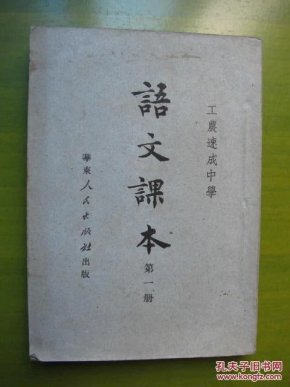 工農速成中學
語文課本
第一册
華東人民出版社出版
孔夫子旧书网